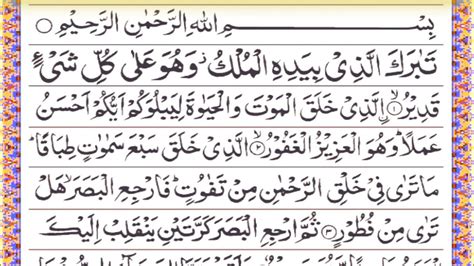 بِسْمِ اللهِ الرَّحْمٰنِ الرَّحِيْمِ ○
تَبٰرَكَ الَّذِىْ بِيَدِهِ الْمُلْكُ ز وَهُوَ عَلٰى كُلِّ شَىْءٍ
قَدِيْرُ ۨ ﴿١﴾ الَّذِىْ خَلَقَ الْمَوْتَ وَالْحَيٰوةَ لِيَبْلُوَكُمْ اَيُّكُمْ اَحْسَنُ
عَمَلًا ؕ وَهُوَ الْعَزِيْزُ الْغَفُوْرُ ﴿٢﴾ الَّذِىْ خَلَقَ سَبْعَ سَمٰوٰتٍ طِبَاقًا ؕ
مَا تَرٰى فِىْ خَلْقِ الرَّحْمٰنِ مِنْ تَفٰوُتٍ ؕ فَارْجِعِ الْبَصَرَ هَلْ
تَرٰى مِنْ فُطُوْرٍ ﴿٣﴾ ثُمَّ ارْجِعِ الْبَصَرَ كَرَّتَيْنِ يَنْقَلِبْ اِلَيْكَ